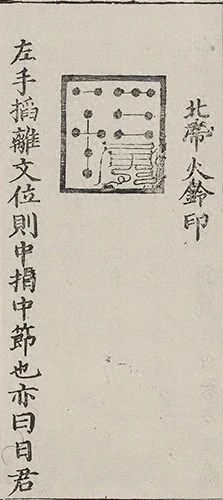 北帝火鈴印
左手搯離文位則中指中節也亦曰日君